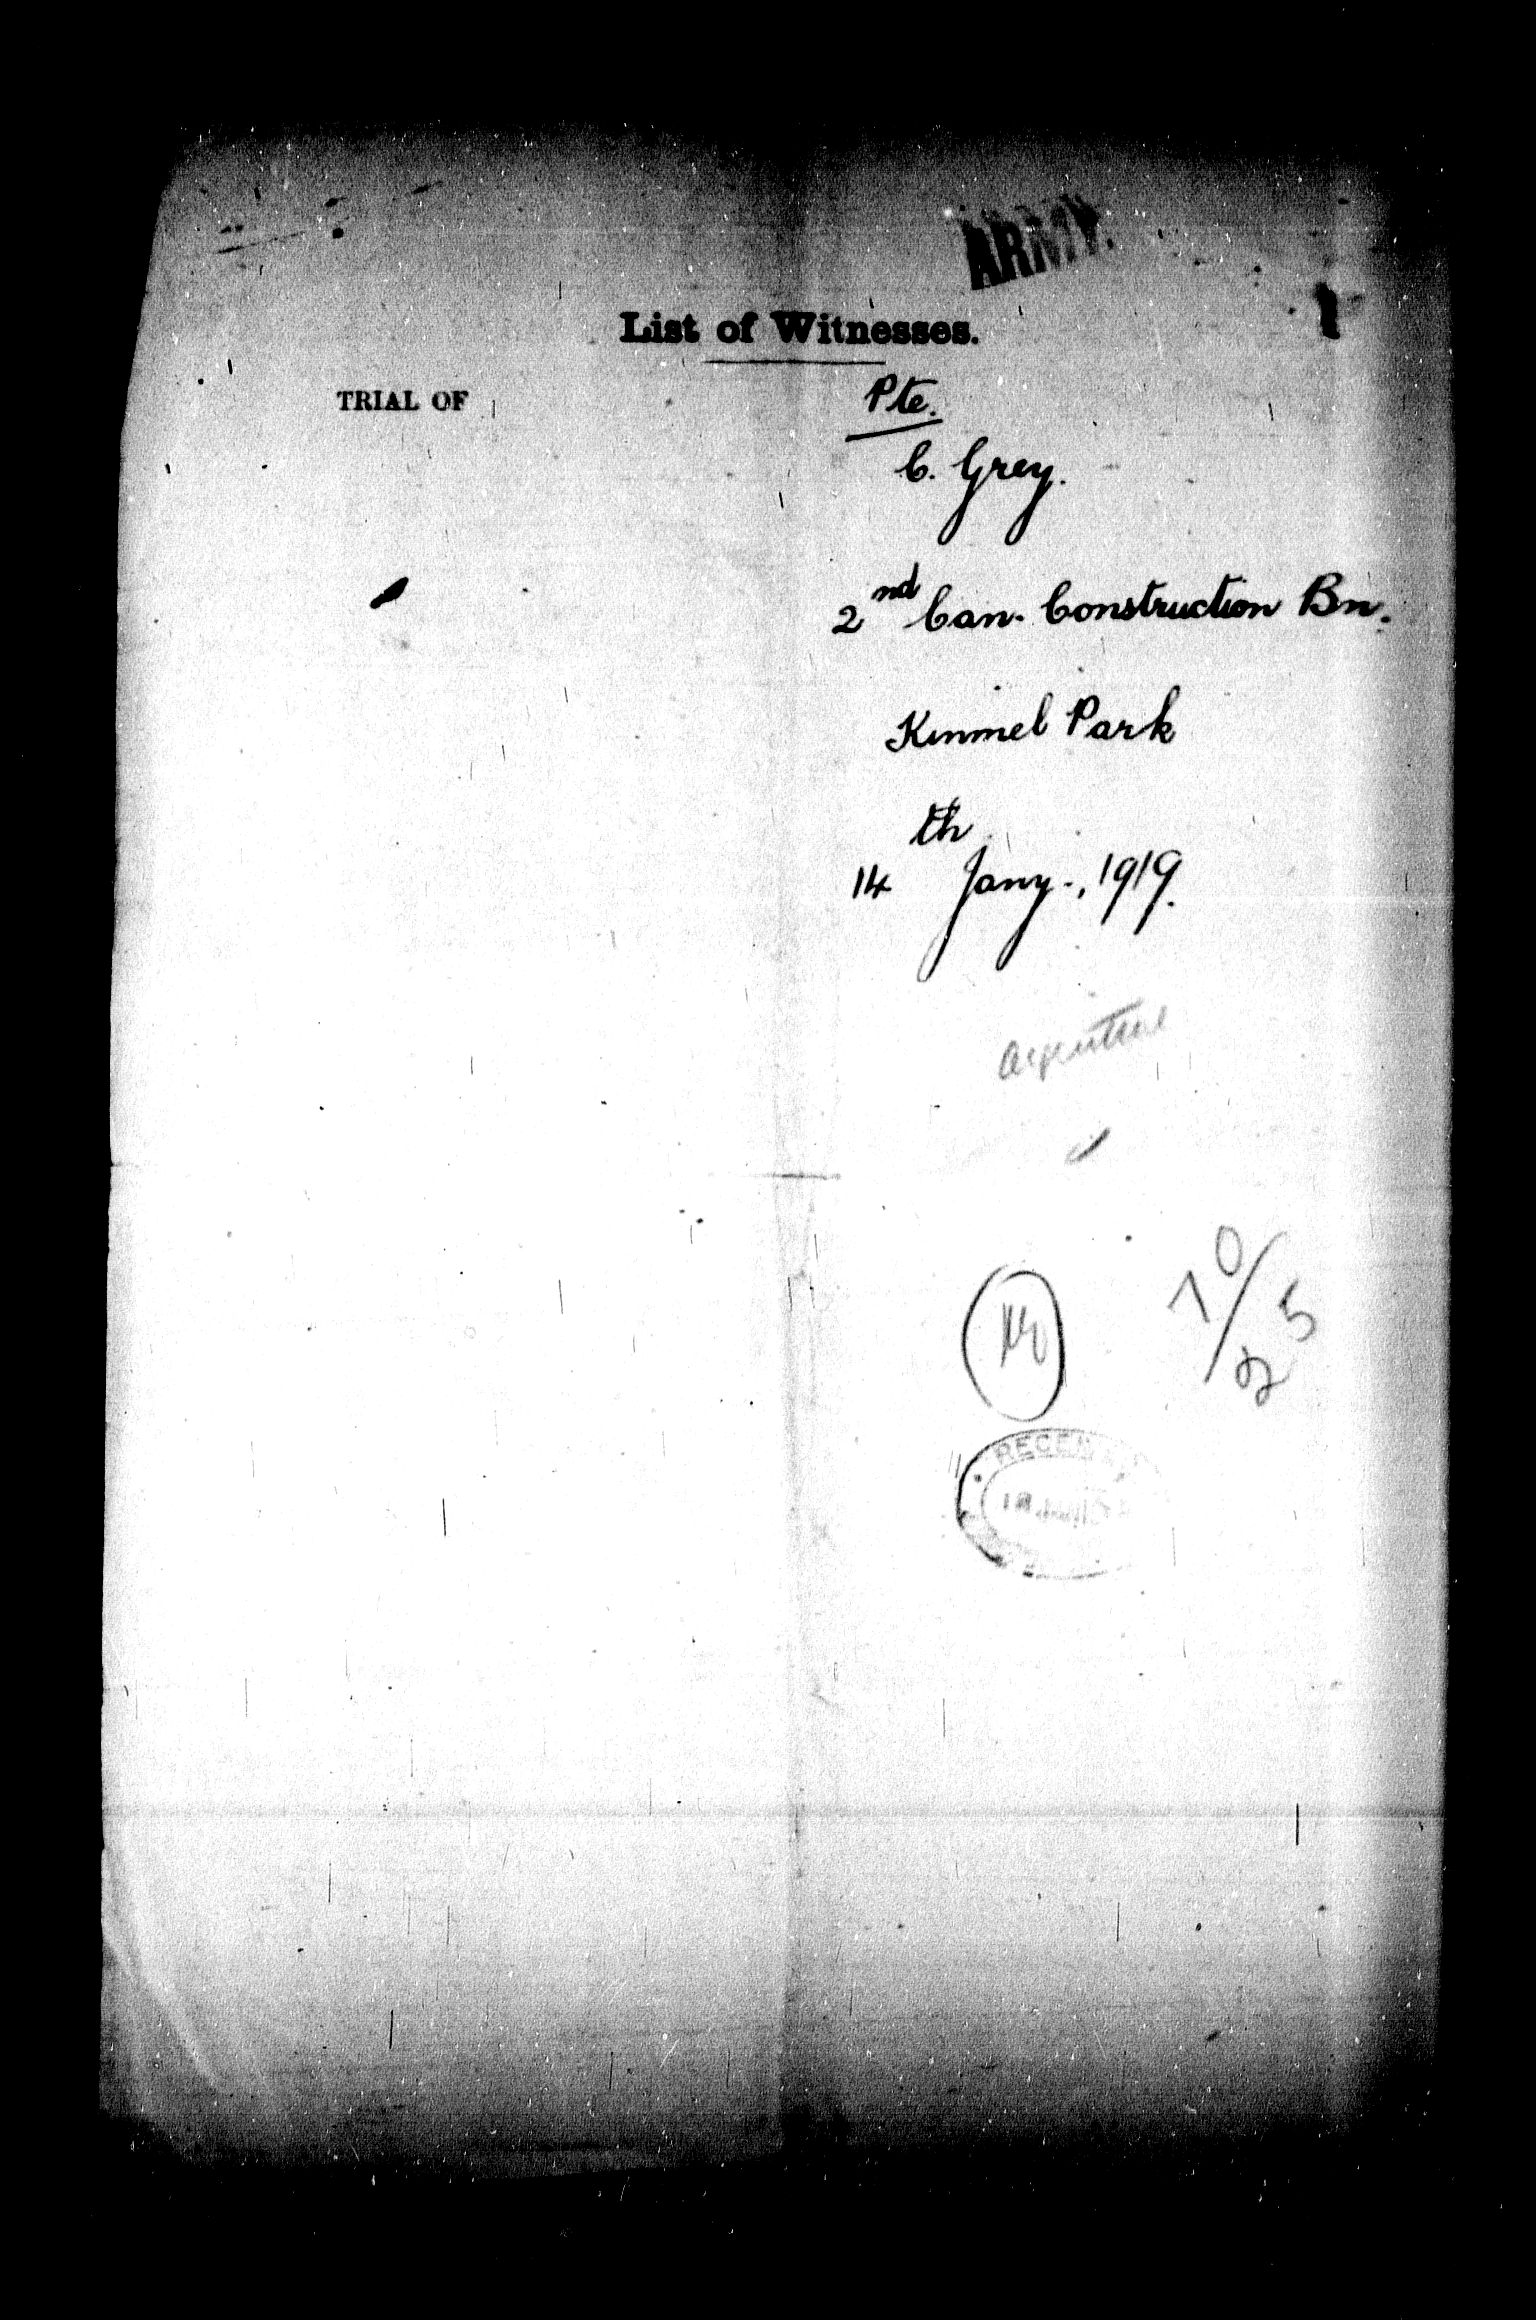 ARMY.
List of Witnesses.
TRIAL OF
Pte.
C. Grey.
2nd Can. Construction Bn.
Kinmel Park
14th Jany-., 1919.
70/25
RECEIVED